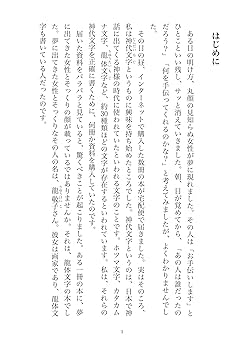 はじめに
ある日の明け方、丸顔の見知らぬ女性が夢に現れました。その人は「お手伝いします」と
ひとことといい残し、サッと消えていきました。朝、目が覚めてから、「あの人は誰だったの
だろう?」「何を手伝ってくれるのかな?」と考えてみましたが、よくわかりませんでし
た。
その日の昼、インターネットで購入した数冊の本が宅配便で届きました。実はそのころ、
私は神代文字というものに興味を持ち始めたところでした。神代文字というのは、日本で神
話に出てくる神様の時代に使われていたといわれる文字のことです。ホツマ文字、カタカム
ナ文字、龍体文字など、約30種類ほどの文字が存在するといわれています。私は、それらの
神代文字を正確に書くために、何冊か資料を購入していたのです。
届いた資料をパラパラと見ていると、驚くべきことが起こりました。ある一冊の本に、夢
に出てきた女性とそっくりの顔が載っているではありませんか。それは、龍体文字の本でし
た。夢に出てきた女性とそっくりなその人の名は、龍敬子さん。彼女は画家であり、龍体文
字も書いている人だったのです。
3